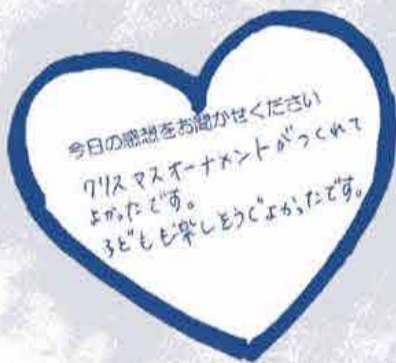 今日の感想をお聞かせください
クリスマスオーナメントがつくれて
よかったです。
子どもも楽しそうでよかったです。